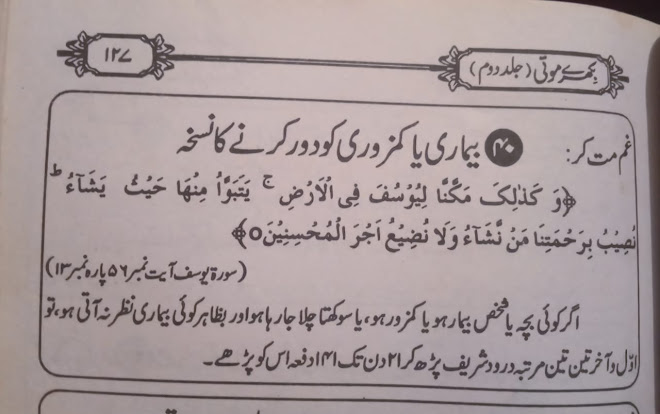 بکھرے موتی (جلد دوم)
۱۲۷
غم مت کر:
۴۰ بیماری یا کمزوری کو دور کرنے کا نسخہ
﴿وَ كَذٰلِكَ مَكَّنَّا لِيُوْسُفَ فِى الْاَرْضِ ۚ يَتَبَوَّاُ مِنْهَا حَيْثُ يَشَآءُ ؕ
نُصِيْبُ بِرَحْمَتِنَا مَنْ نَّشَآءُ وَلَا نُضِيْعُ اَجْرَ الْمُحْسِنِيْنَ۝﴾
(سورۃ یوسف آیت نمبر ۵۶ پارہ نمبر ۱۳)
اگر کوئی بچہ یا شخص بیمار ہو یا کمزور ہو، یا سوکھتا چلا جا رہا ہو اور بظاہر کوئی بیماری نظر نہ آتی ہو، تو
اوّل و آخر تین تین مرتبہ درود شریف پڑھ کر ۲۱ دن تک ۱۴۱ دفعہ اس کو پڑھے۔